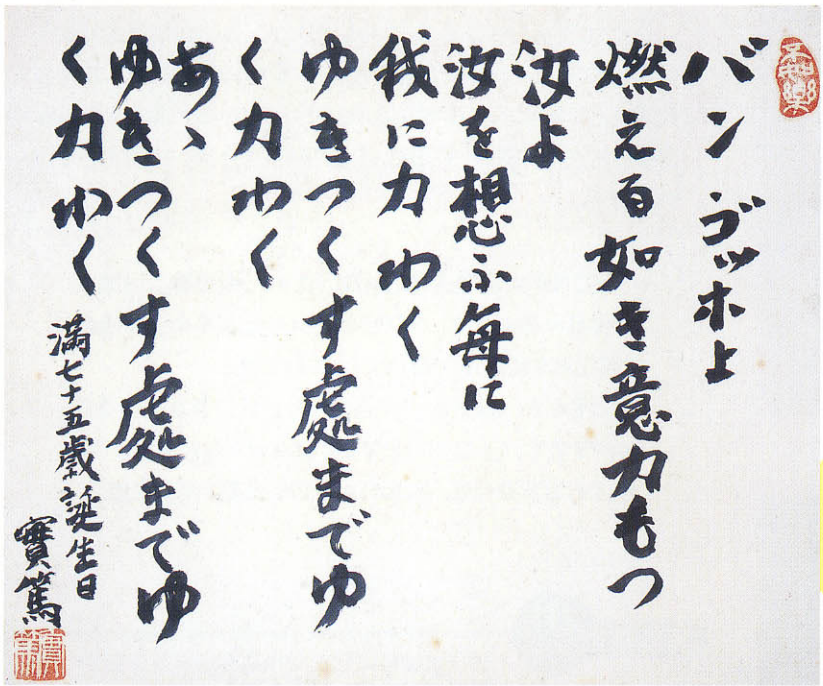 バン ゴッホよ
燃える如き意力もつ
汝よ
汝を想ふ毎に
我に力わく
ゆきつくす處までゆ
く力わく
あゝ
ゆきつくす處までゆ
く力わく
滿七十五歳誕生日
實篤